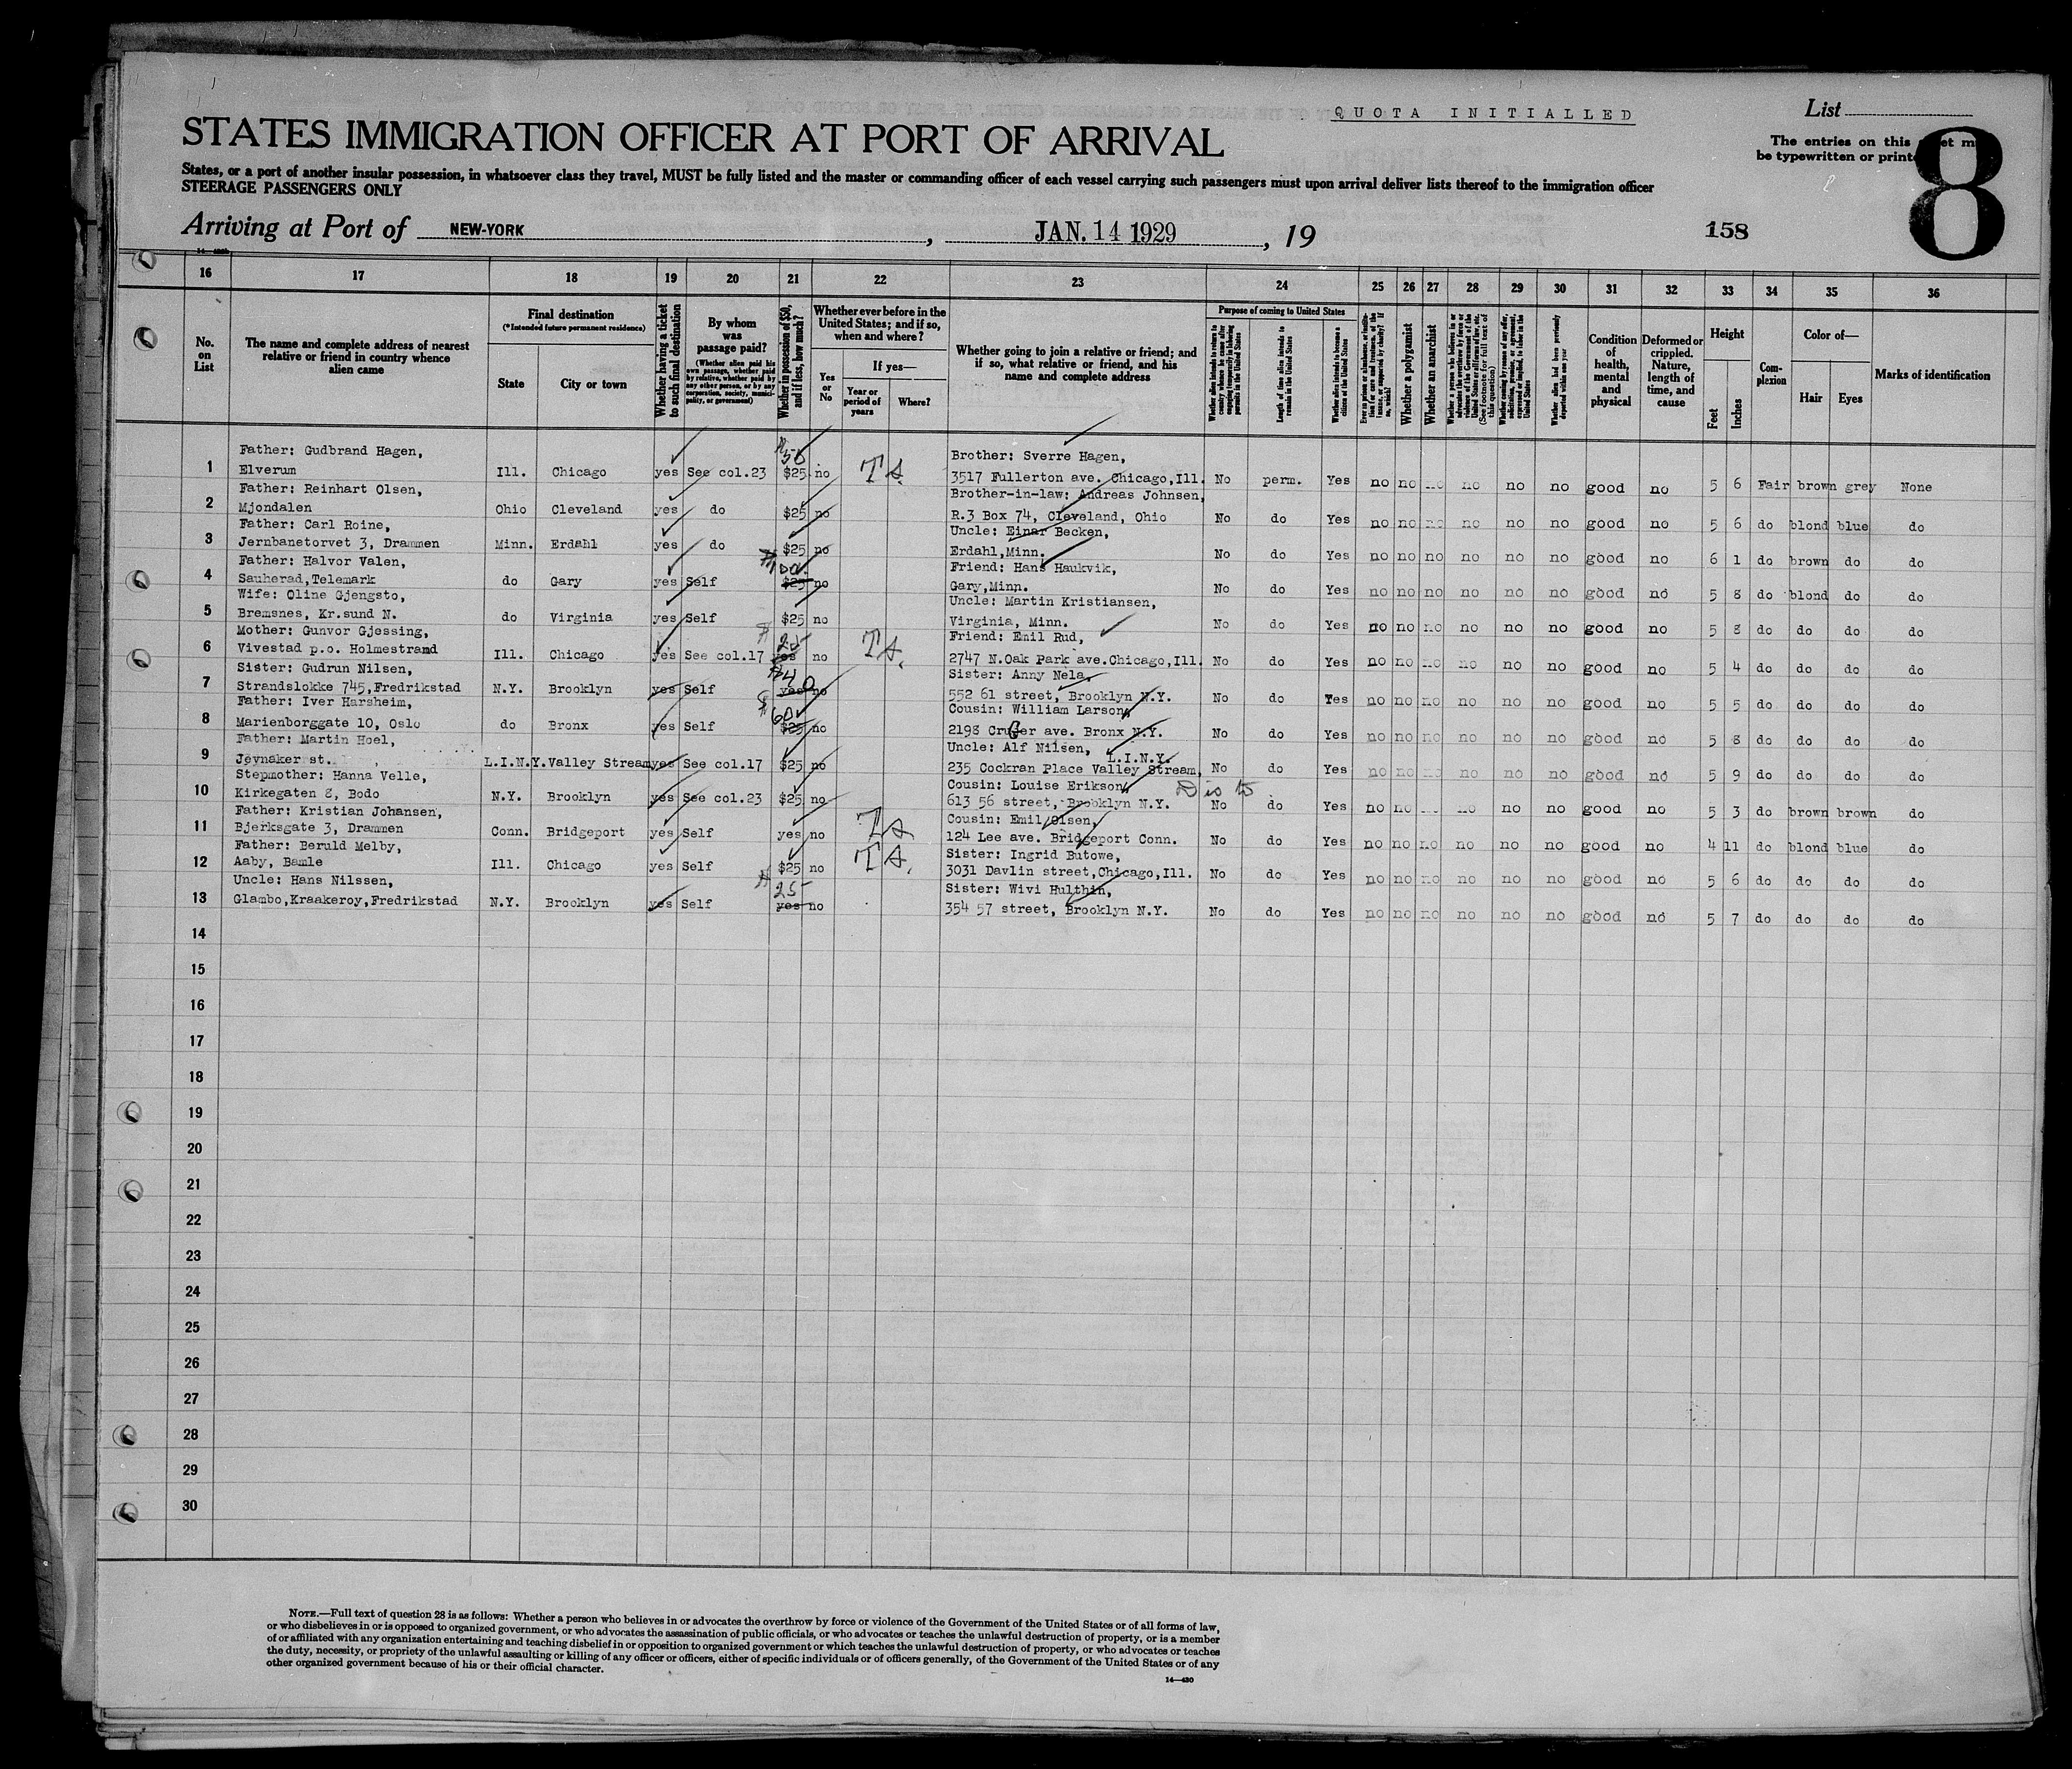 QUOTA INITIALLED
List
STATES IMMIGRATION OFFICER AT PORT OF ARRIVAL
The entries on this
be typewritten or
8
States, or a port of another insular possession, in whatsoever class they travel, MUST be fully listed and the master or commanding officer of each vessel carrying such passengers must upon arrival deliver lists thereof to the immigration officer
STEERAGE PASSENGERS ONLY
Arriving at Port of NEW-YORK, JAN. 14 1929, 19
158
16 17 18 19 20 21 22 23 24 25 26 27 28 29 30 31 32 33 34 35 36
No. on List
The name and complete address of nearest relative or friend in country whence alien came
Final destination
(*Intended future permanent residence)
State
City or town
Whether having a ticket to such final destination
By whom was passage paid?
(Whether alien paid his own passage, whether paid by relative, whether paid by any other person, or by any corporation, society, municipality, or government)
Whether in possession of $50, and if less, how much?
Whether ever before in the United States; and if so, when and where?
Yes or No
If yes—
Year or period of years
Where?
Whether going to join a relative or friend; and if so, what relative or friend, and his name and complete address
Purpose of coming to United States
Length of time alien intends to remain in the United States
Whether alien intends to become a citizen of the United States
Whether a polygamist
Whether an anarchist
Condition of health, mental and physical
Deformed or crippled. Nature, length of time, and cause
Height
Feet
Inches
Complexion
Color of—
Hair
Eyes
Marks of identification
Father: Gudbrand Hagen, $50 Brother: Sverre Hagen,
1 Elverum Ill. Chicago yes See col.23 $25 no T.A. 3517 Fullerton ave. Chicago,Ill. No perm. Yes no no no no no no good no 5 6 Fair brown grey None
Father: Reinhart Olsen, Brother-in-law: Andreas Johnsen,
2 Mjondalen Ohio Cleveland yes do $25 no R.3 Box 74, Cleveland, Ohio No do Yes no no no no no no good no 5 6 do blond blue do
Father: Carl Roine, Uncle: Einar Becken,
3 Jernbanetorvet 3, Drammen Minn. Erdahl yes do $25 no Erdahl,Minn. No do Yes no no no no no no good no 6 1 do brown do do
Father: Halvor Valen, $100. Friend: Hans Haukvik,
4 Sauherad,Telemark do Gary yes Self $25 no Gary,Minn. No do Yes no no no no no no good no 5 8 do blond do do
Wife: Oline Gjengsto, Uncle: Martin Kristiansen,
5 Bremsnes, Kr.sund N. do Virginia yes Self $25 no Virginia, Minn. No do Yes no no no no no no good no 5 8 do do do do
Mother: Gunvor Gjessing, $25 Friend: Emil Rud,
6 Vivestad p.o. Holmestrand Ill. Chicago yes See col.17 yes no T.A. 2747 N.Oak Park ave.Chicago,Ill. No do Yes no no no no no no good no 5 4 do do do do
Sister: Gudrun Nilsen, $40 Sister: Anny Nela,
7 Strandslokke 745,Fredrikstad N.Y. Brooklyn yes Self yes no 552 61 street, Brooklyn N.Y. No do Yes no no no no no no good no 5 5 do do do do
Father: Iver Harsheim, $60 Cousin: William Larson,
8 Marienborggate 10, Oslo do Bronx yes Self $25 no 2198 Cruger ave. Bronx N.Y. No do Yes no no no no no no good no 5 8 do do do do
Father: Martin Hoel, Uncle: Alf Nilsen, L.I.N.Y.
9 Jeynaker st. L.I.N.Y. Valley Stream yes See col.17 $25 no 235 Cockran Place Valley Stream, No do Yes no no no no no no good no 5 9 do do do do
Stepmother: Hanna Velle, Cousin: Louise Erikson,
10 Kirkegaten 8, Bodo N.Y. Brooklyn yes See col.23 $25 no 613 56 street, Brooklyn N.Y. No do Yes no no no no no good no 5 3 do brown brown do
Father: Kristian Johansen, Cousin: Emil Olsen,
11 Bjerksgate 3, Drammen Conn. Bridgeport yes Self yes no T.A. 124 Lee ave. Bridgeport Conn. No do Yes no no no no no no good no 4 11 do blond blue do
Father: Beruld Melby, Sister: Ingrid Butowe,
12 Aaby, Bamle Ill. Chicago yes Self $25 no T.A. 3031 Davlin street,Chicago,Ill. No do Yes no no no no no no good no 5 6 do do do do
Uncle: Hans Nilssen, $25 Sister: Wivi Hulthin,
13 Glambo,Kraakeroy,Fredrikstad N.Y. Brooklyn yes Self yes no 354 57 street, Brooklyn N.Y. No do Yes no no no no no no good no 5 7 do do do do
14
15
16
17
18
19
20
21
22
23
24
25
26
27
28
29
30
NOTE.—Full text of question 28 is as follows: Whether a person who believes in or advocates the overthrow by force or violence of the Government of the United States or of all forms of law,
or who disbelieves in or is opposed to organized government, or who advocates the assassination of public officials, or who advocates or teaches the unlawful destruction of property, or is a member
of or affiliated with any organization entertaining and teaching disbelief in or opposition to organized government or which teaches the unlawful destruction of property, or who advocates or teaches
the duty, necessity, or propriety of the unlawful assaulting or killing of any officer or officers, either of specific individuals or of officers generally, of the Government of the United States or of any
other organized government because of his or their official character.
14—430